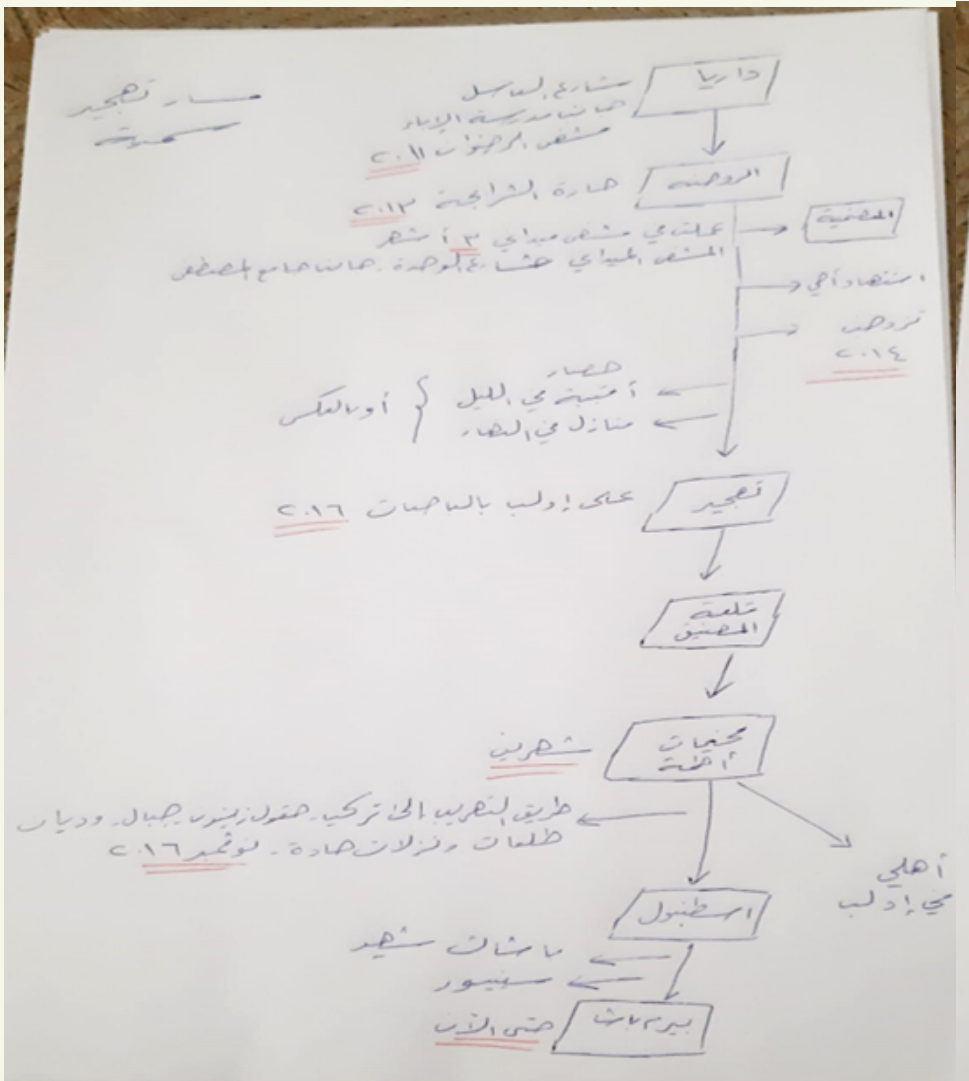 مسار تهجير
سمية
داريا
شارع العاسل
جانب مدرسة الإباء
مشفى الرضوان ٢٠١١
الروضة
حارة الشرابجة ٢٠١٣
المعضمية
عملت في مشفى ميداني ٣ أشهر
المشفى الميداني شارع الوحدة. جانب جامع المصطفى
استشهاد أخي
تزوجت
٢٠١٤
حصار
أقبية في الليل
منازل في النهار
أو بالعكس
تهجير
على إدلب بالباصات ٢٠١٦
قلعة
المضيق
مخيمات
أطمة
شهرين
طريق التهريب إلى تركيا. حقول زيتون. جبال. وديان
طلعات ونزلات حادة. نوفمبر ٢٠١٦
أهلي
في إدلب
اسطنبول
شهير
بيرم باشا
حتى الآن